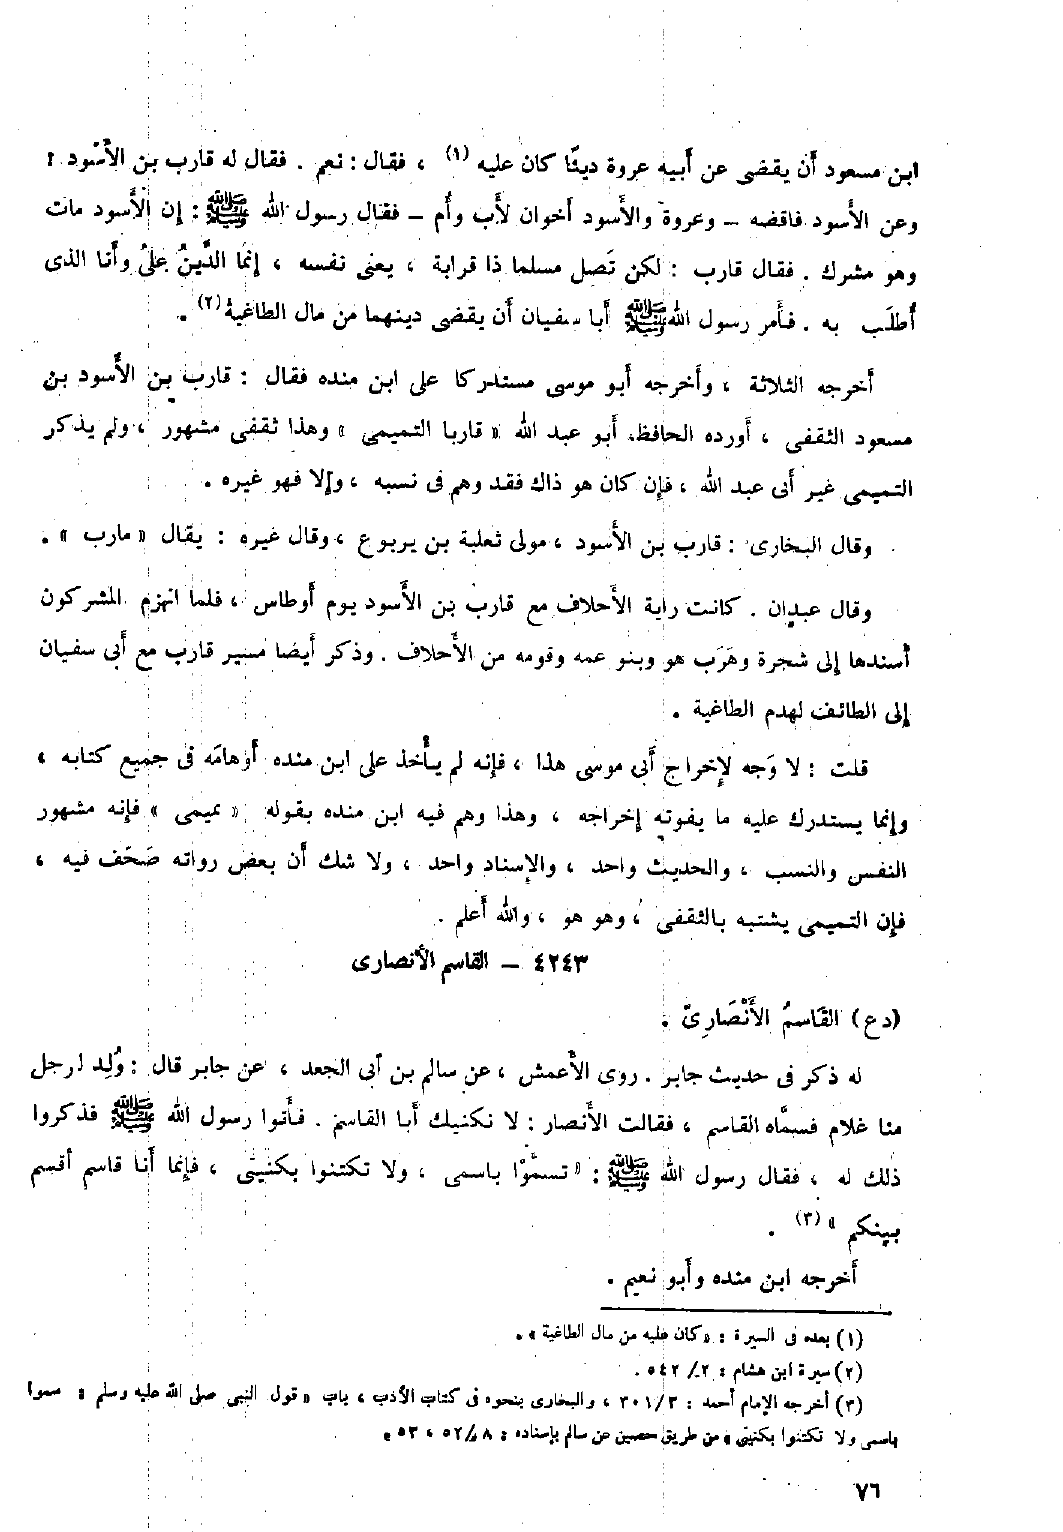 ابن مسعود أن يقضى عن أبيه عروة دينًا كان عليه (١) ، فقال : نعم . فقال له قارب بن الأسود :
وعن الأسود فاقضه – وعروة والأسود أخوان لأب وأم – فقال رسول الله ﷺ : إن الأسود مات
وهو مشرك . فقال قارب : لكن تَصل مسلما ذا قرابة ، يعنى نفسه ، إنما الدَّينُ علىُّ وأنا الذى
أُطلَب به . فأمر رسول الله ﷺ أبا سفيان أن يقضى دينهما من مال الطاغية (٢) .
أخرجه الثلاثة ، وأخرجه أبو موسى مستدركا على ابن منده فقال : قارب بن الأسود بن
مسعود الثقفى ، أورده الحافظ أبو عبد الله « قاربا التميمى » وهذا ثقفى مشهور ، ولم يذكر
التميمى غير أبى عبد الله ، فإن كان هو ذاك فقد وهم فى نسبه ، وإلا فهو غيره .
وقال البخارى : قارب بن الأسود ، مولى ثعلبة بن يربوع ، وقال غيره : يقال « مارب » .
وقال عبدان . كانت راية الأحلاف مع قارب بن الأسود يوم أوطاس ، فلما انهزم المشركون
أسندها إلى شجرة وهَرَب هو وبنو عمه وقومه من الأحلاف . وذكر أيضا مسير قارب مع أبى سفيان
إلى الطائف لهدم الطاغية .
قلت : لا وَجه لإخراج أبى موسى هذا ، فإنه لم يأخذ على ابن منده أوهامَه فى جميع كتابه ،
وإنما يستدرك عليه ما يفوته إخراجه ، وهذا وهم فيه ابن منده بقوله « تميمى » فإنه مشهور
النفس والنسب ، والحديث واحد ، والإسناد واحد ، ولا شك أن بعض رواته صَحَف فيه ،
فإن التميمى يشتبه بالثقفى ، وهو هو ، والله أعلم .
٤٢٤٣ – القاسم الأنصارى
(دع) القَاسمُ الأَنْصَارِىّ .
له ذكر فى حديث جابر . روى الأعمش ، عن سالم بن أبى الجعد ، عن جابر قال : وُلِد لرجل
منا غلام فسمَّاه القاسم ، فقالت الأنصار : لا نكنيك أبا القاسم . فأتوا رسول الله ﷺ فذكروا
ذلك له ، فقال رسول الله ﷺ : « تسمَّوْا باسمى ، ولا تكتنوا بكنيتى ، فإنما أنا قاسم أقسم
بينكم » (٣) .
أخرجه ابن منده وأبو نعيم .
(١) بعده فى السيرة : « كان عليه من مال الطاغية » .
(٢) سيرة ابن هشام : ٢ / ٥٤٢ .
(٣) أخرجه الإمام أحمد : ٣٠١/٣ ، والبخارى بنحوه فى كتاب الأدب ، باب « قول النبى صلى الله عليه وسلم : سموا
باسمى ولا تكتنوا بكنيتى » من طريق حصين عن سالم بإسناده : ٨ / ٥٢ ، ٥٣ .
٧٦